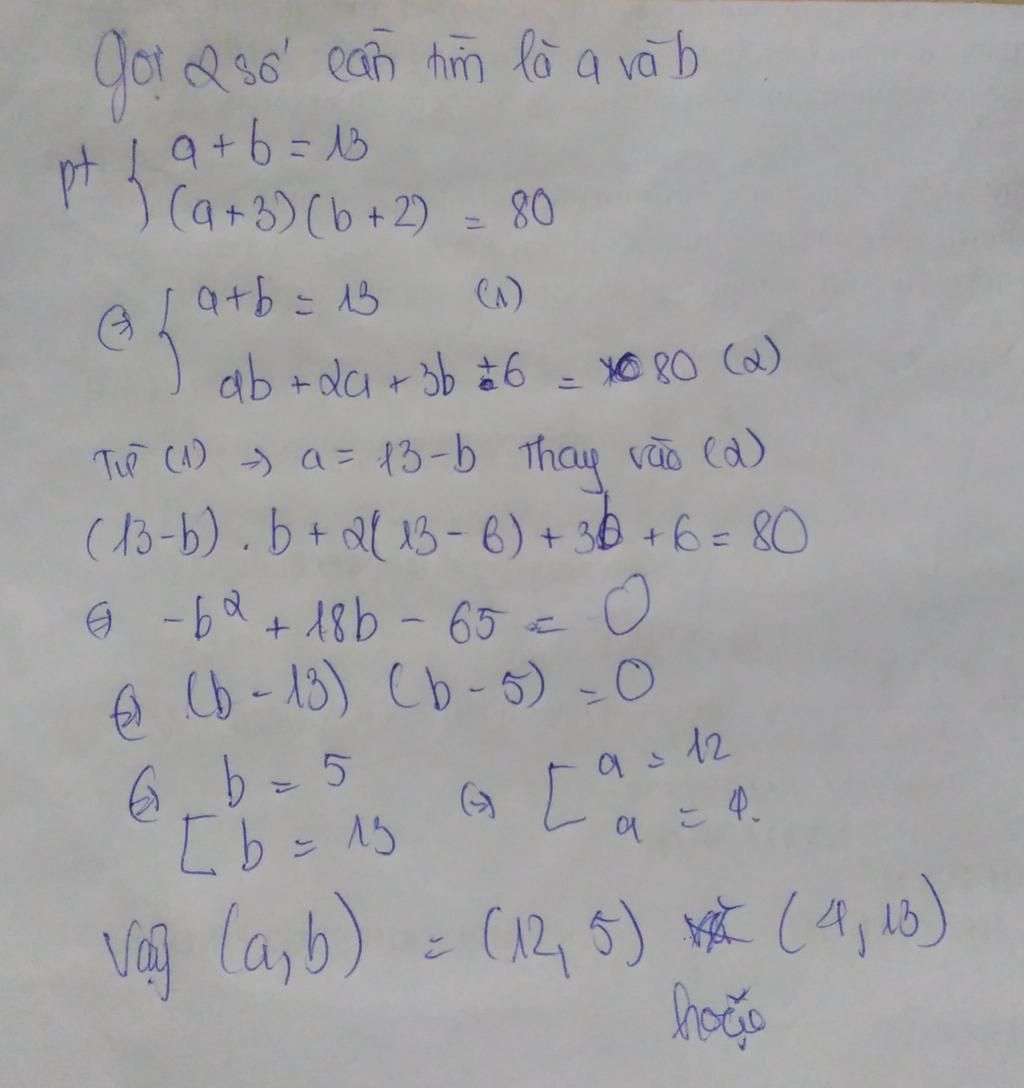 Gọi 2 số cần tìm là a và b
pt { a + b = 13
(a+3)(b+2) = 80
⇔ { a+b = 13 (1)
ab + 2a + 3b + 6 = 80 (2)
Từ (1) → a = 13-b Thay vào (2)
(13-b) . b + 2(13-b) + 3b + 6 = 80
⇔ -b² + 18b - 65 = 0
⇔ (b-13) (b-5) = 0
⇔ [ b = 5 ⇔ [ a = 12
b = 13 a = 4.
Vậy (a,b) = (12,5) (4,13)
hoặc